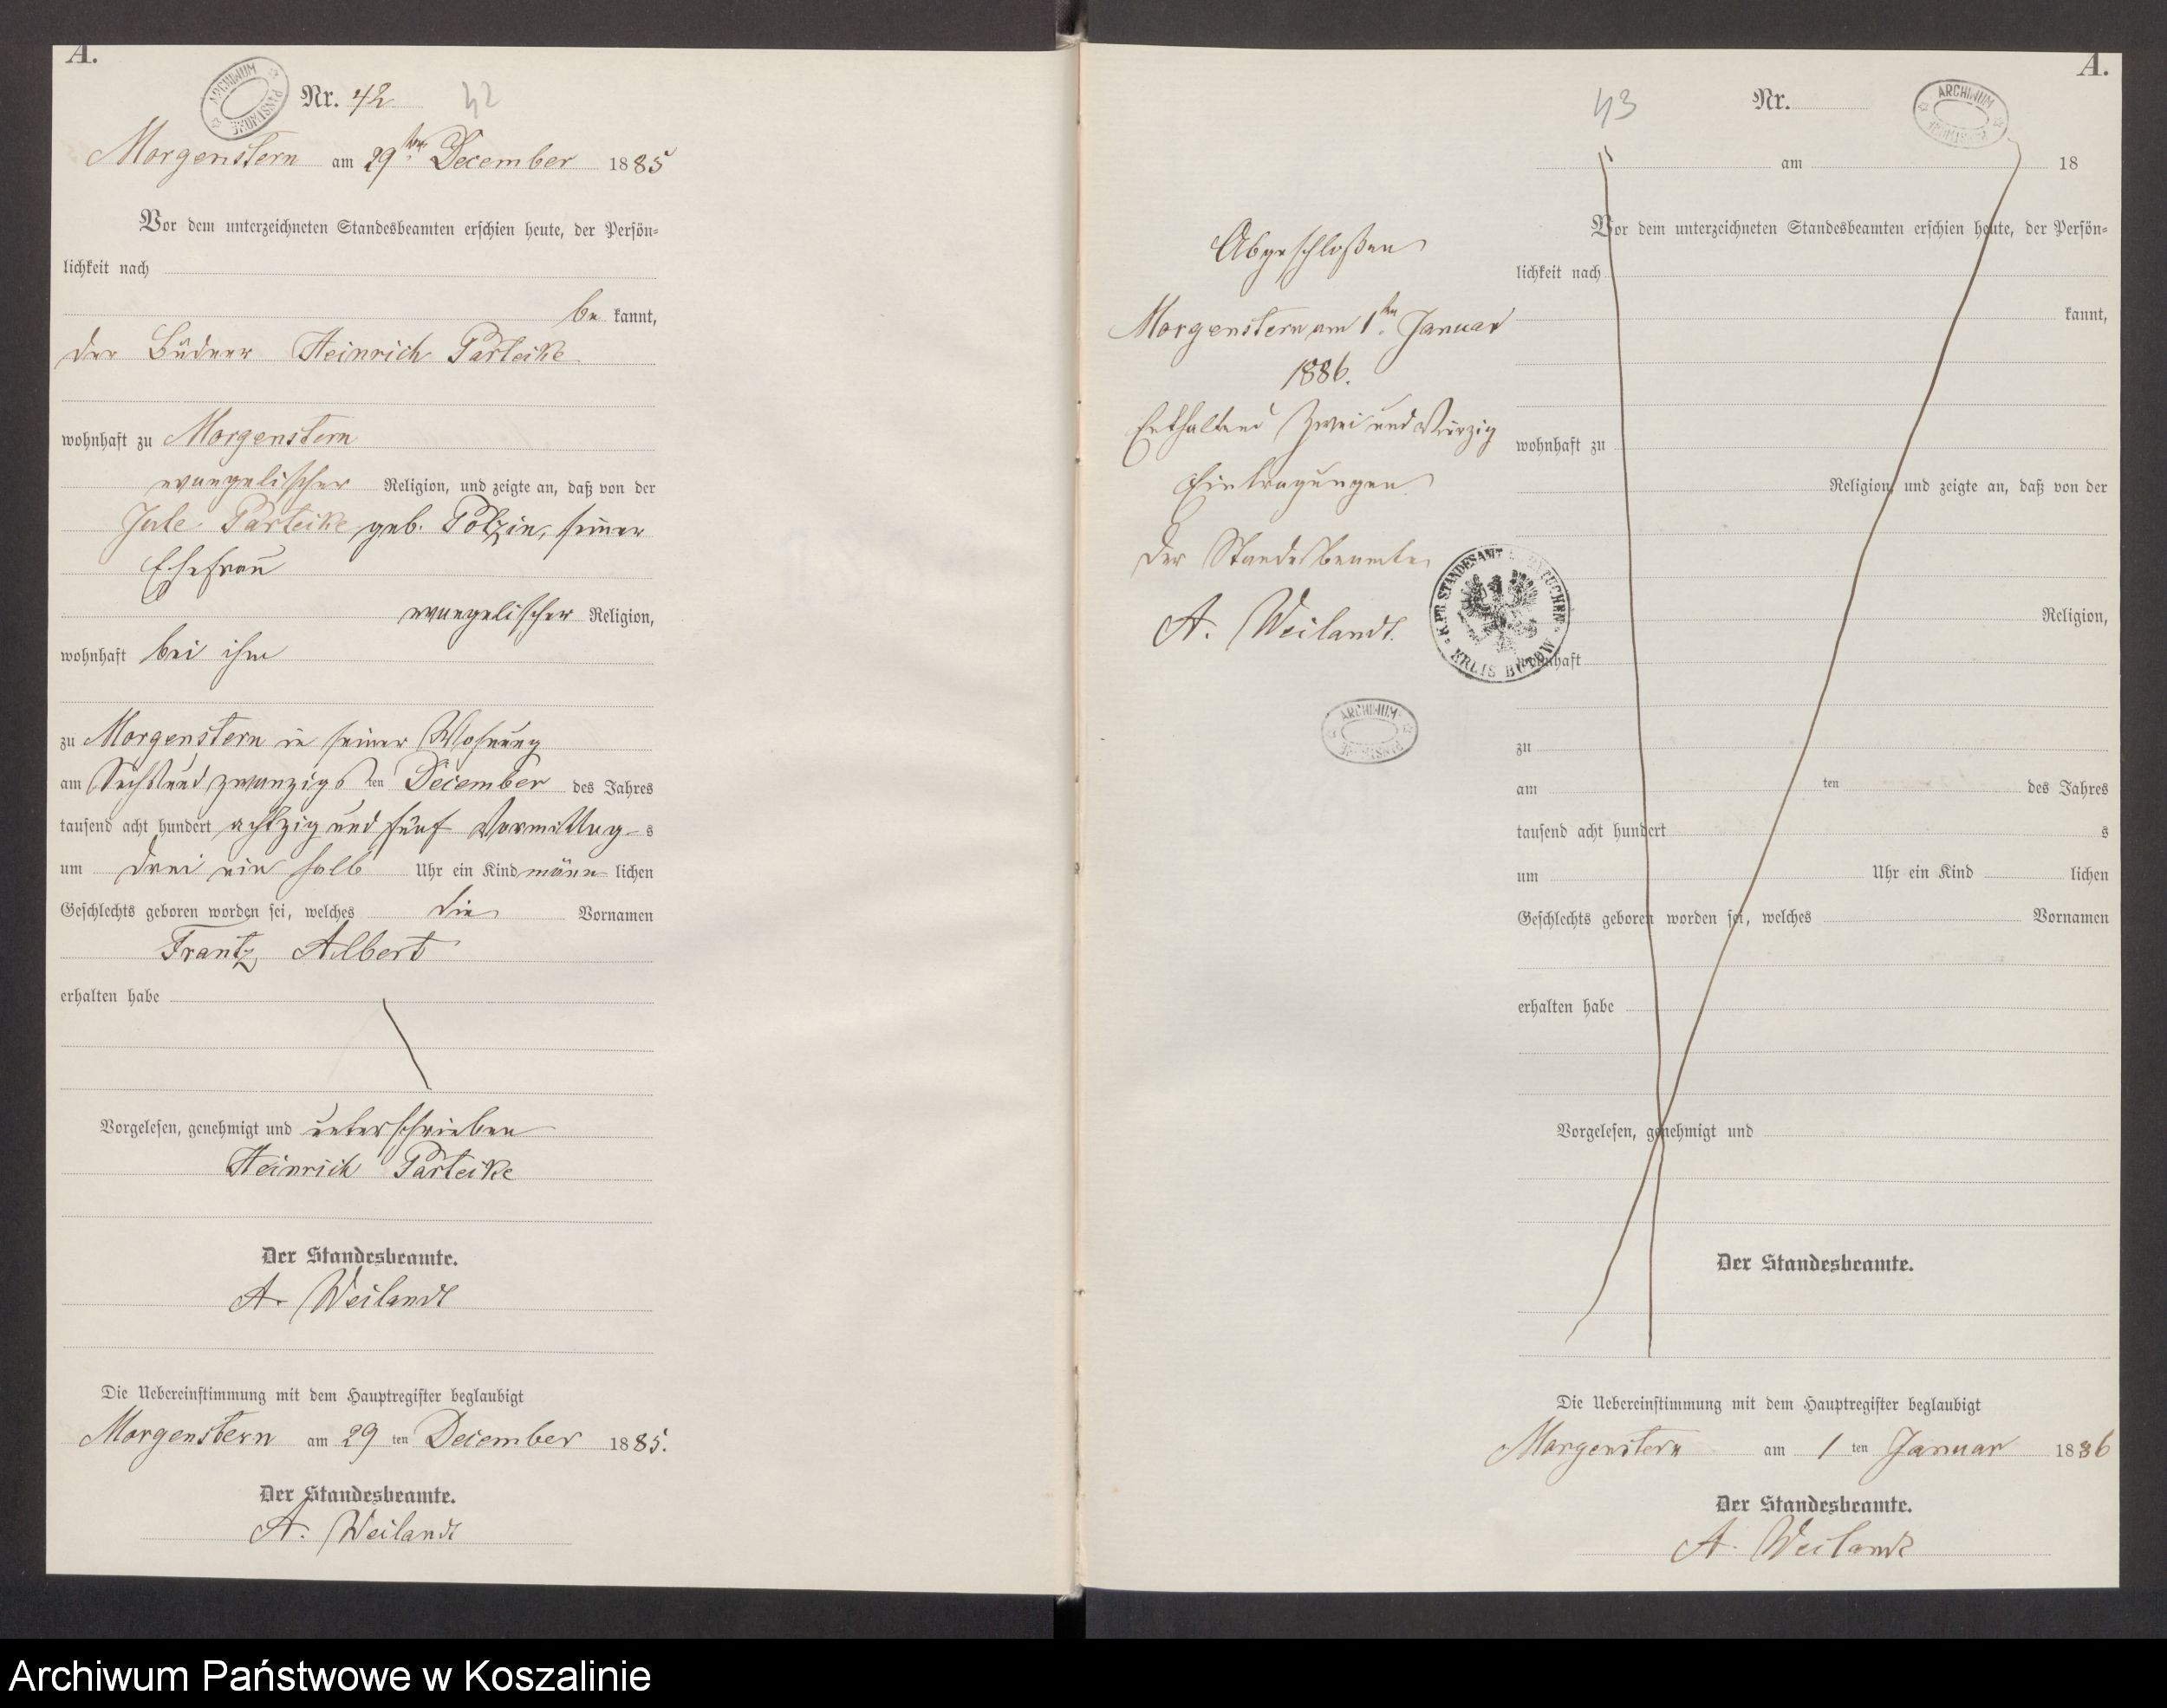 A.
ARCHIWUM PAŃSTWOWE
Nr. 42
42
Morgenstern am 29ten December 1885
Vor dem unterzeichneten Standesbeamten erschien heute, der Persön=
lichkeit nach
be kannt,
der Büdner Heinrich Parteike
wohnhaft zu Morgenstern
evangelischer Religion, und zeigte an, daß von der
Jule Parteike geb. Polzin, seiner
Ehefrau
evangelischer Religion,
wohnhaft bei ihm
zu Morgenstern in seiner Wohnung
am Sechsundzwanzigs ten December des Jahres
tausend acht hundert achtzig und fünf Vormittag s
um drei ein halb Uhr ein Kind männ lichen
Geschlechts geboren worden sei, welches die Vornamen
Frantz Albert
erhalten habe
Vorgelesen, genehmigt und unterschrieben
Heinrich Parteike
Der Standesbeamte.
A. Weilandt
Die Uebereinstimmung mit dem Hauptregister beglaubigt
Morgenstern am 29 ten December 1885.
Der Standesbeamte.
A. Weilandt
Abgeschloßen
Morgenstern am 1ten Januar
1886.
Enthaltend Zwei und Vierzig
Eintragungen
Der Standesbeamte
A. Weilandt.
K. PR. STANDESAMT
KREIS BÜTOW
ARCHIWUM PAŃSTWOWE
A.
43
Nr.
ARCHIWUM PAŃSTWOWE
am 18
Vor dem unterzeichneten Standesbeamten erschien heute, der Persön=
lichkeit nach
kannt,
wohnhaft zu
Religion, und zeigte an, daß von der
Religion,
wohnhaft
zu
am ten des Jahres
tausend acht hundert s
um Uhr ein Kind lichen
Geschlechts geboren worden sei, welches Vornamen
erhalten habe
Vorgelesen, genehmigt und
Der Standesbeamte.
Die Uebereinstimmung mit dem Hauptregister beglaubigt
Morgenstern am 1 ten Januar 1886
Der Standesbeamte.
A. Weilandt
Archiwum Państwowe w Koszalinie